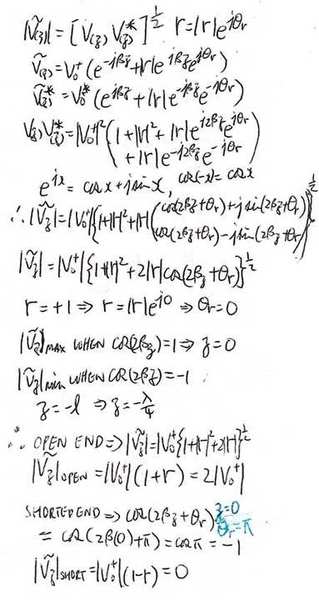 |Ṽ(z)| = [V(z) V(z)*]^½ Γ=|Γ|e^jθr
Ṽ(z) = V₀⁺(e^-jβz + |Γ| e^jβz e^jθr)
Ṽ(z)* = V₀*(e^jβz + |Γ| e^-jβz e^-jθr)
V(z) V(z)* = |V₀⁺|² (1+|Γ|² + |Γ| e^j2βz e^jθr
+ |Γ| e^-j2βz e^-jθr)
e^jx = cos x + j sin x, cos(-x) = cos x
∴ |Ṽz| = |V₀⁺| {1+|Γ|² + |Γ| (cos(2βz+θr) + j sin(2βz+θr)
cos(2βz+θr) - j sin(2βz+θr))}^½
|Ṽz| = |V₀⁺| {1+|Γ|² + 2|Γ| cos(2βz+θr)}^½
Γ = +1 ⇒ Γ = |Γ|e^j0 ⇒ θr = 0
|Ṽz|MAX WHEN cos(2βz) = 1 ⇒ z = 0
|Ṽz|min WHEN cos(2βz) = -1
z = -l ⇒ z = -λ/4
∴ OPEN END ⇒ |Ṽz| = |V₀⁺| {1+|Γ|² + 2|Γ|}^½
|Ṽz|OPEN = |V₀⁺| (1+Γ) = 2|V₀⁺|
SHORTED END ⇒ cos(2βz + θr) z=0
θr = π
= cos(2β(0) + π) = cos π = -1
|Ṽz|SHORT = |V₀⁺| (1-Γ) = 0